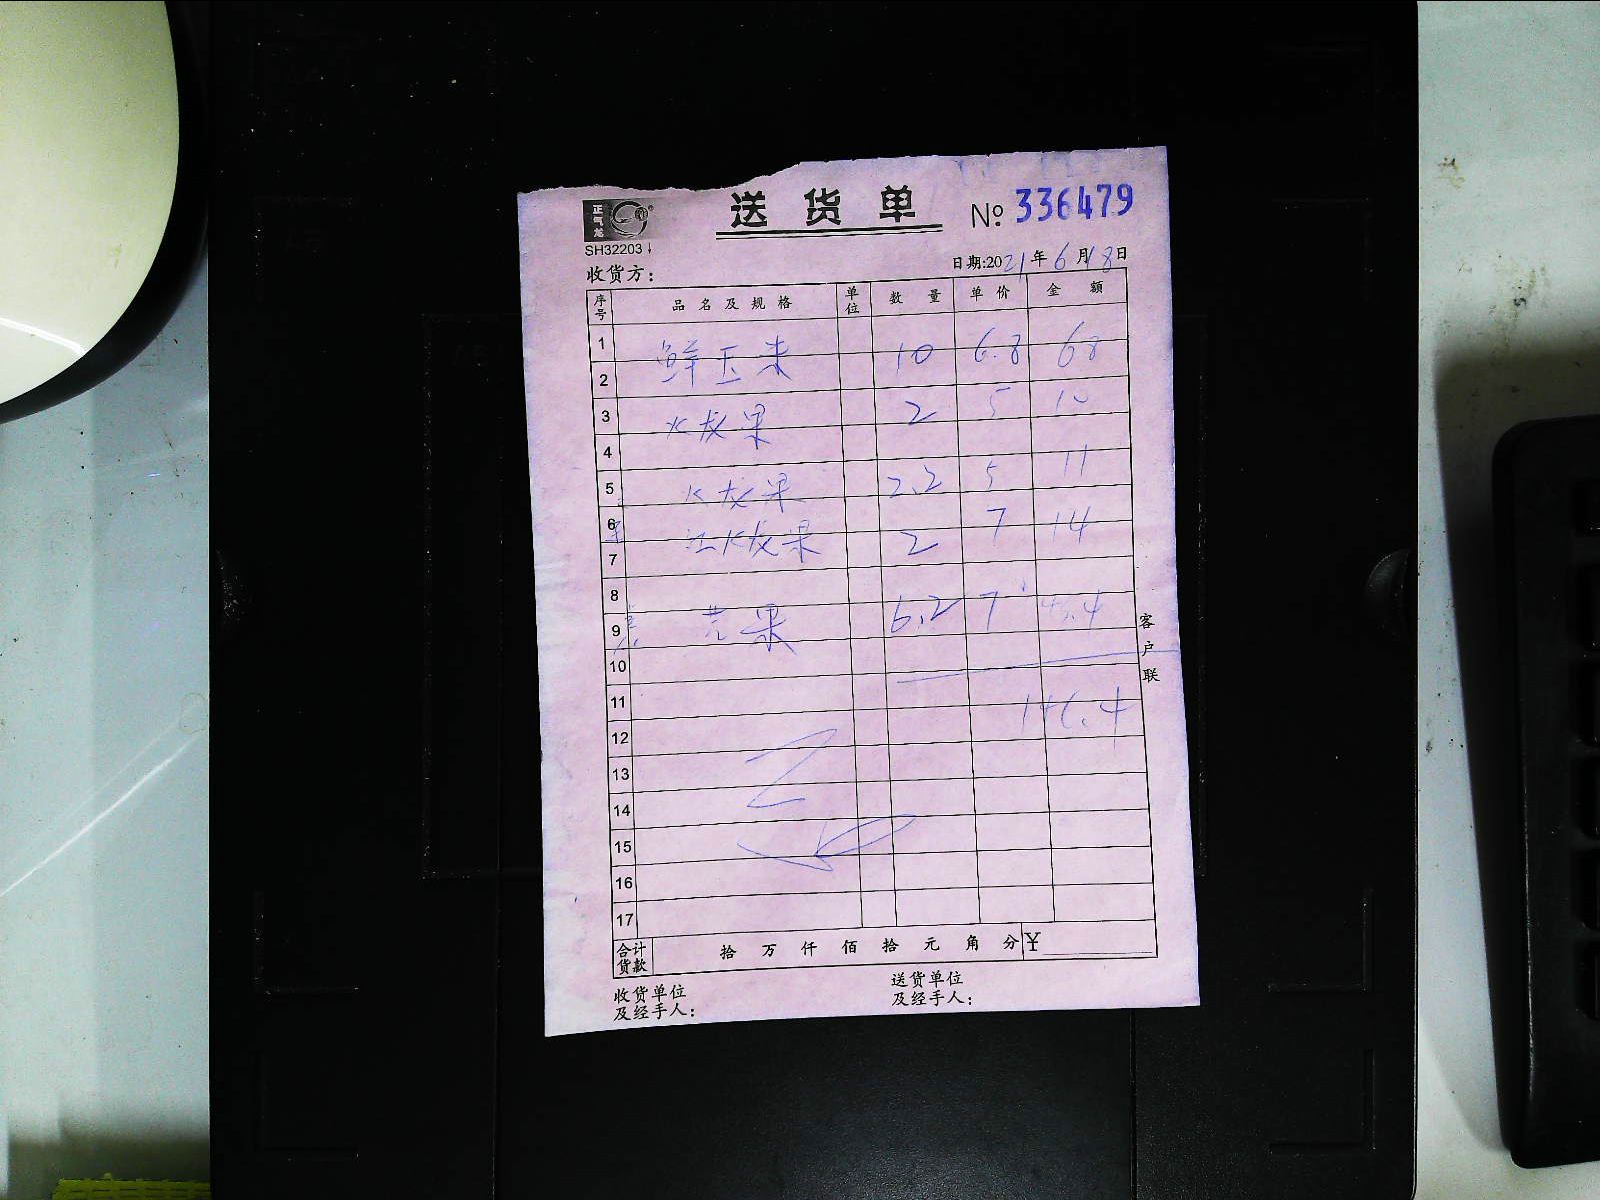 正气龙
送货单 № 336479
SH32203
收货方： 日期:2021年6月18日
序号 品名及规格 单位 数量 单价 金额
1
鲜玉米 10 6.8 68
2
3 火龙果 2 5 10
4
5 火龙果 2.2 5 11
6
红火龙果 2 7 14
7
8
9 苹果 6.2 7 43.4
10
11
146.4
12
13
14
15
16
17
合计货款 拾 万 仟 佰 拾 元 角 分 ¥
收货单位 送货单位
及经手人： 及经手人：
客户联